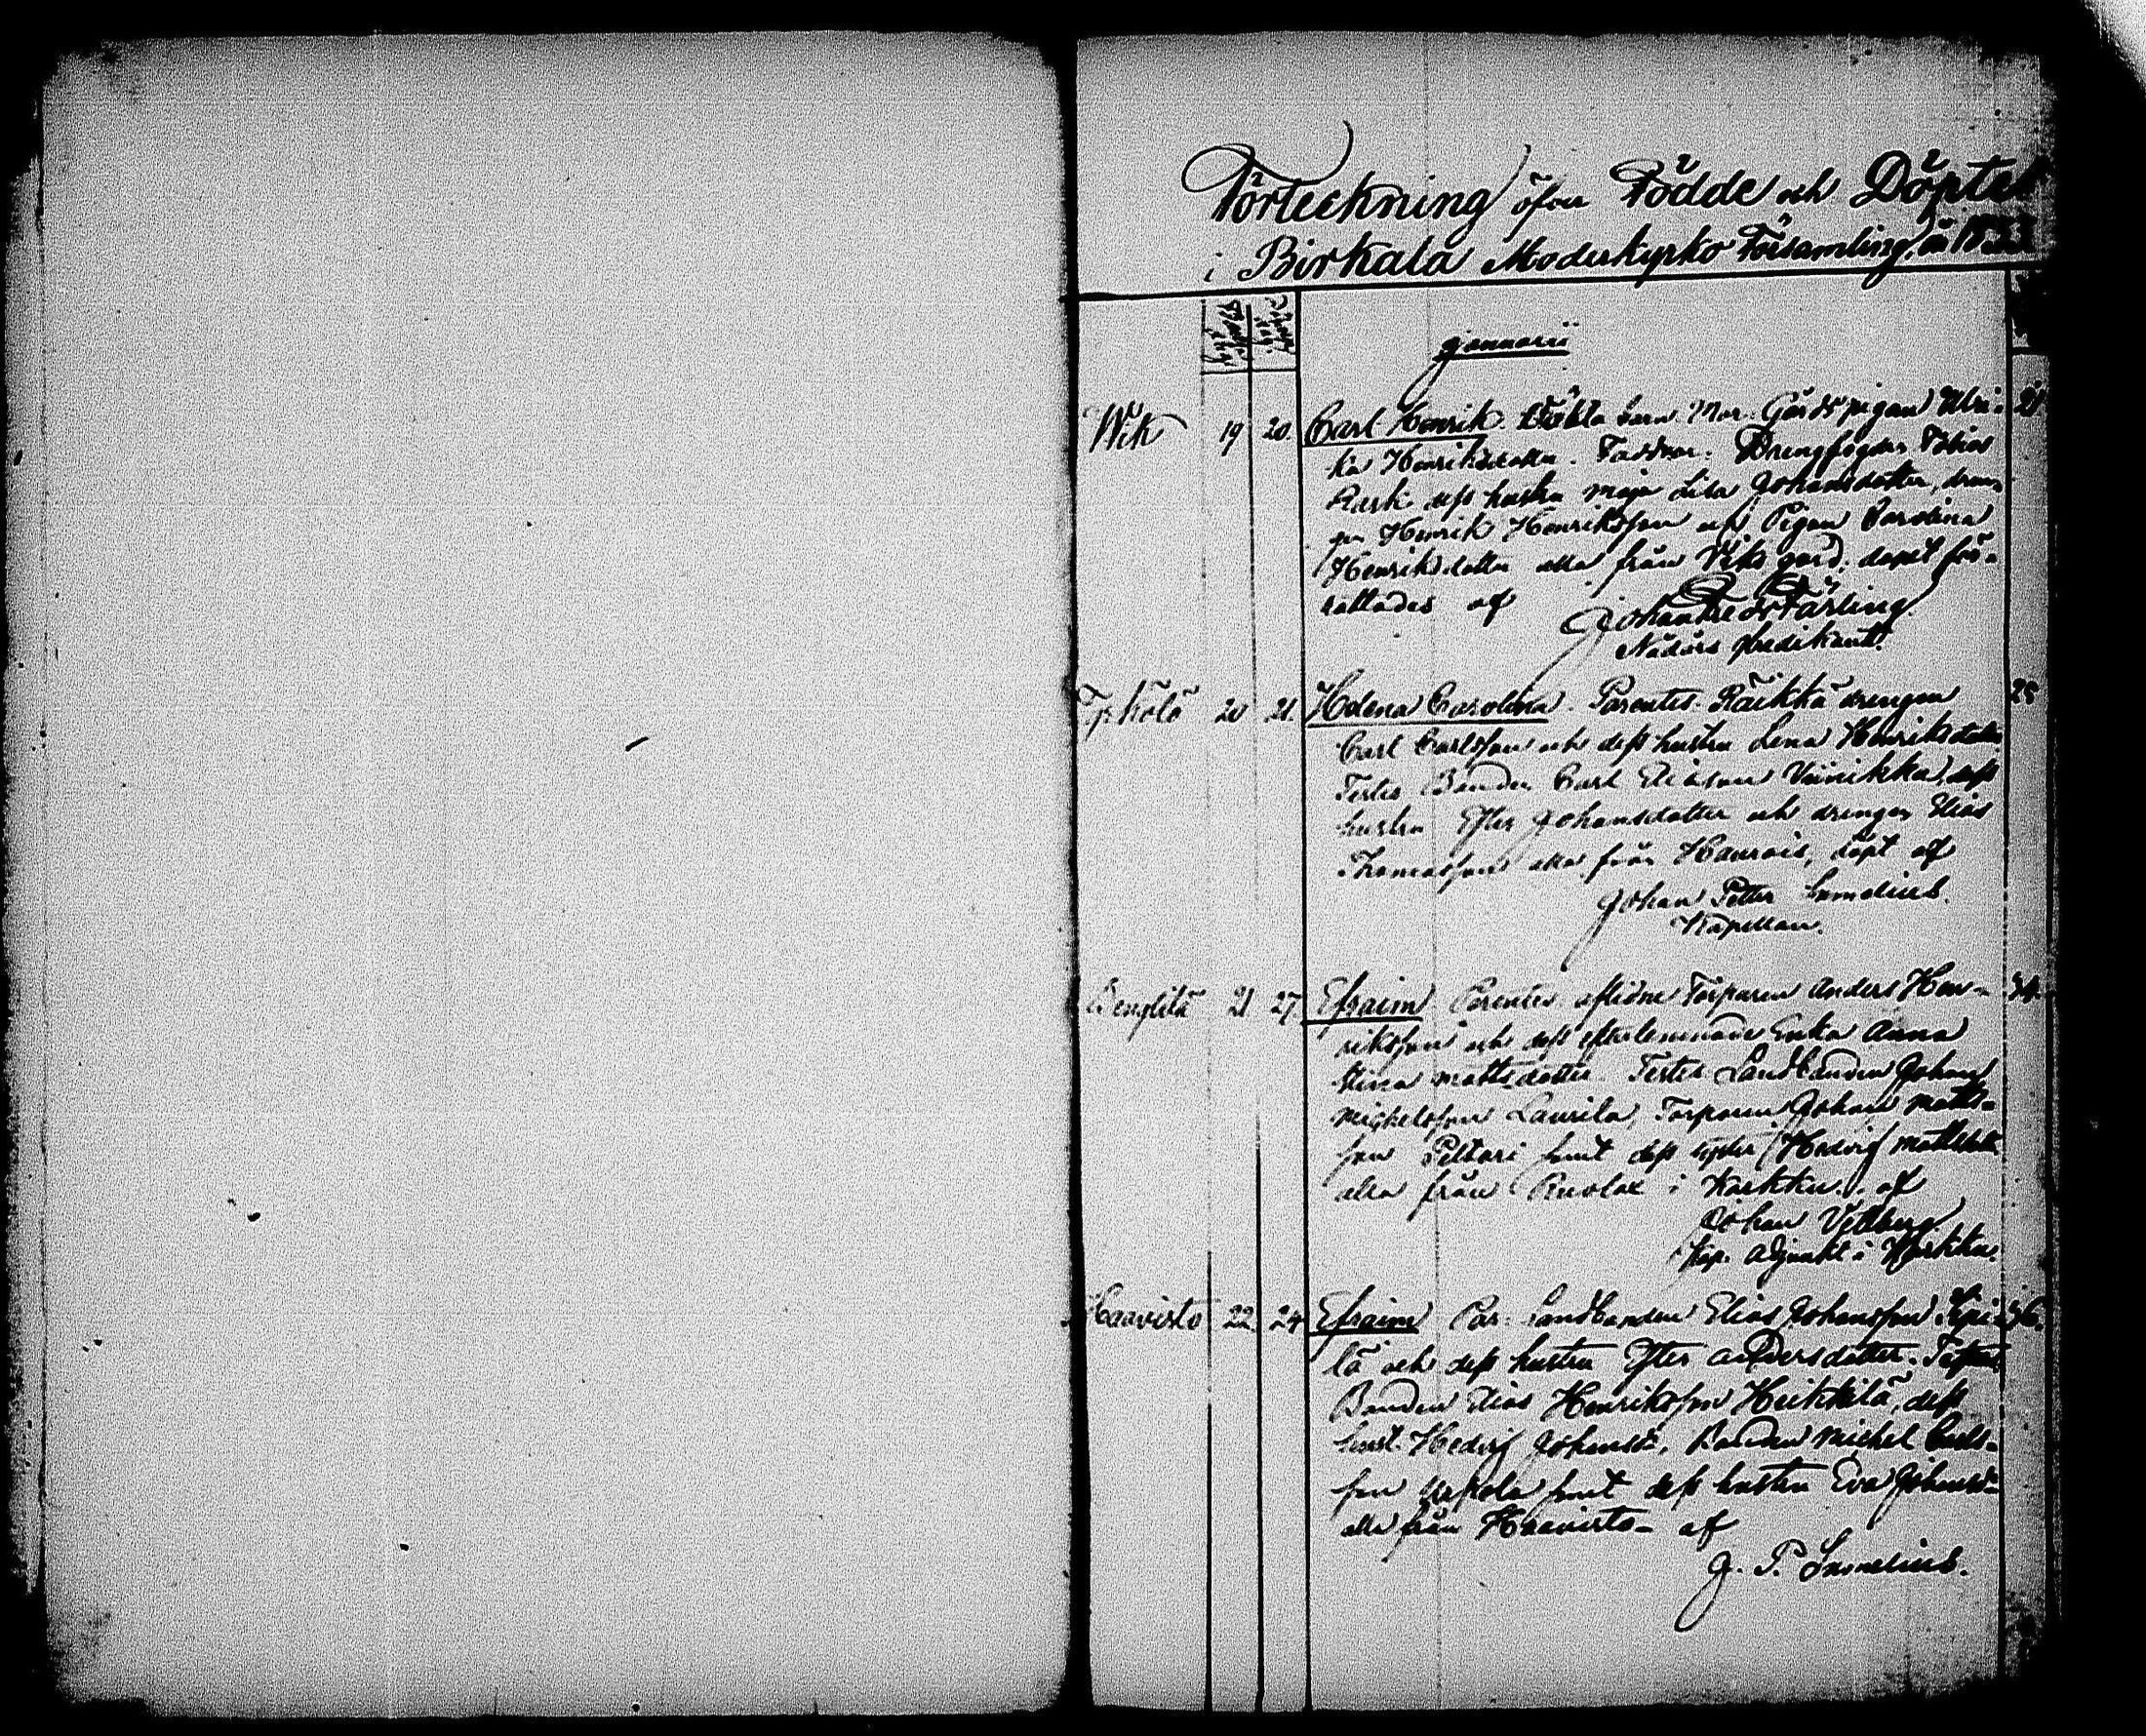 Förteckning öfver Födde och Döpte
i Birkala Moderkyrko Församling, år 1833
Januarii
Wik 19 20. Carl Henrik. Oäkta barn. Mor. Gårdspigan Ulri- 21
ka Henriksdotter. Faddrar. Drengfogden Tobias
Rask dess hustru Maja Lisa Johansdotter, dren-
gen Henrik Henriksson och Pigan Carolina
Henriksdotter alla från Viks gård. dopet för-
rättades af
Johan Fredr Färling
Nådårs predikant.
20 21. Helena Carolina. Parentes. Räikkä drengen 25
Carl Carlsson och dess hustru Lena Henriksdotter
Testes Bonden Carl Eliasson Viinikka, dess
hustru Ester Johansdotter och drengen Elias
Thomasson alla från Haurois, döpt af
Johan Petter
Kapellan.
21 27. Efraim Parentes aflidne Torparen Anders Hen- 34.
riksson och dess efterlemnade Enka Anna
Stina Mattsdotter. Testes Landbonden Johan
Michelsson Laurila, Torparen Johan Matts-
son Peltari samt dess syster Hedvig Mattsdotter
alla från i Karkku. af
Johan
Kap. Adjunkt i Karkku.
Haavisto 22. 24 Efraim Par: Landbonden Elias Johansson Sipi- 36.
lä och dess hustru Ester Andersdotter. Testes
Bonden Elias Henriksson Heikkilä, dess
hust. Hedvig Johansd:, Bonden Michel Carls-
son samt dess hustru Eva Johansd:
alla från Haavisto- af
J. P.